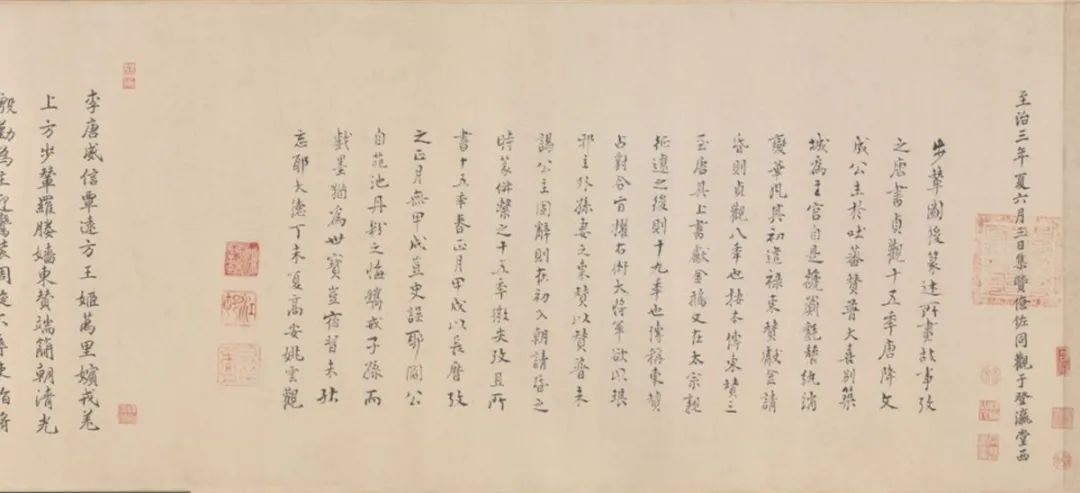 至治三年夏六月三日集賢僚佐同觀于登瀛堂西
步輦圖後篆述所畫故事攷
之唐書貞觀十五年唐降文
成公主於吐蕃贊普大喜別築
城為王宮自是罽氈襲紈綃
變華風其初遣祿東贊獻金請
昏則貞觀八年也按本傳東贊三
至唐其上書獻金鵝又在太宗親
征遼之後則十九年也傳稱東贊
占對合旨擢右衛大將軍欲以琅
邪主外孫妻之東贊以贊普未
謁公主固辭則在初入朝請昏之
時篆併繫之十五年微失攷且所
書十五年春正月甲戌以長曆攷
之正月無甲戌豈史誤耶閻公
自池丹粉之悔鐫戒子孫而
戲墨猶為世寶豈宿習未能
忘耶大德丁未夏高安姚雲觀
李唐威信覃遠方王姬萬里嬪戎羌
上方步輦羅媵嬙東贊端簡朝清光
殷勤為主迎鸞裝周旋不辱